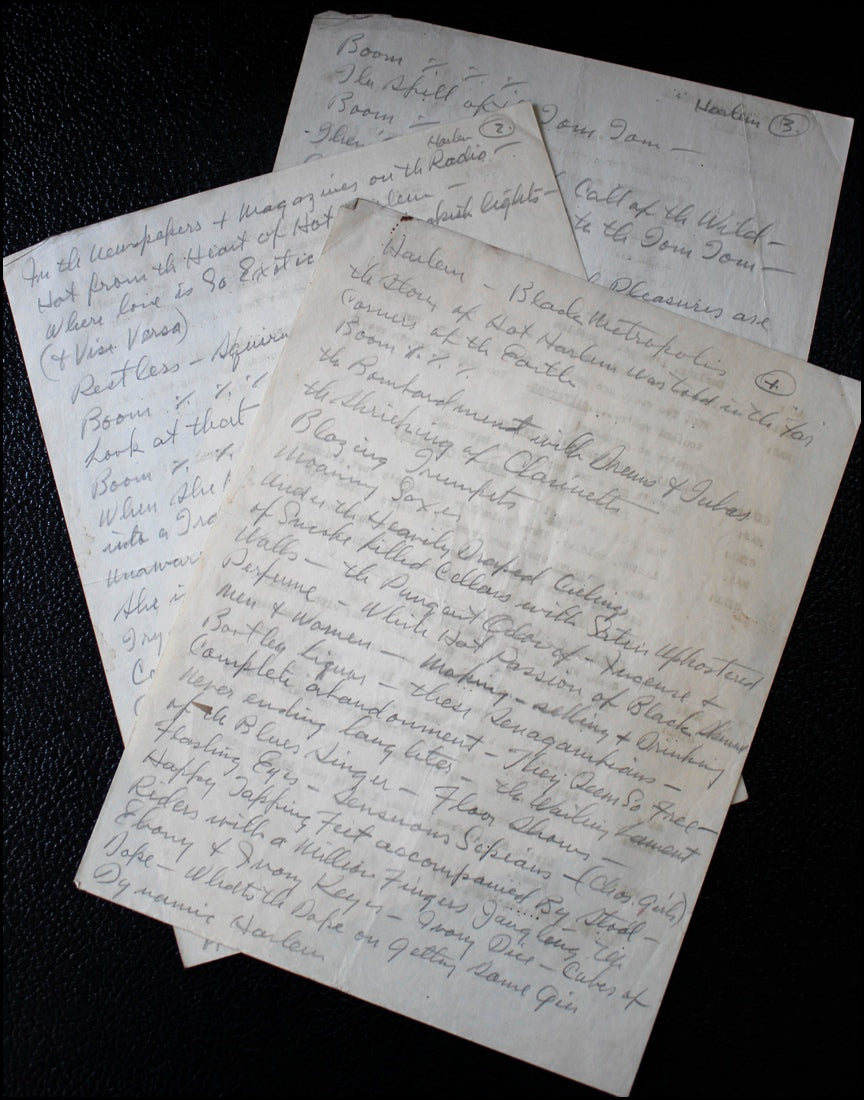 Harlem - Black Metropolis
the Story of Hot Harlem was told in the far
Corners of the Earth
Boom ٪ ٪ ٪
the Bombardment with Drums & Tubas
the Shrieking of Clarinetts -
Blazing Trumpets
Moaning Saxes
Under the Heavily Draped Ceilings
of Smoke filled Cellars with Satin Uphostered
Walls - the Pungent Odor of - Incense &
Perfume - While Hot Passion of Black
Men & Women - Making - selling & Drinking
Bootleg Liquor - these Senagambians -
Complete abandonment - They Seem So Free -
never ending laughter - the Wailing Lament
of the Blues Singer - Floor Shows -
Flashing Eyes - Sensuous Sepians - (Chos. Girls)
Happy Tapping Feet accompanied By Stool -
Riders with a Million Fingers Jangling the
Ebony & Ivory Keys - Ivory Dice - Cubes of
Dope - Whats the Dope on getting some Gin
Dynamic Harlem
Harlem 2.
In the Newspapers & Magazines on th Radio -
Hot from th Heart of Hot
Where love is So Exotic lights -
(& Vise Versa)
Restless -
Boom ٪ ٪ ٪
Look at that
Boom ٪ ٪
When She
into a
Unawar
She i
Harlem 3.
Boom ٪ ٪ ٪
The Spill of Tom Tom -
Boom
Then
Call of th Wild -
to th Tom Tom -
Pleasures are